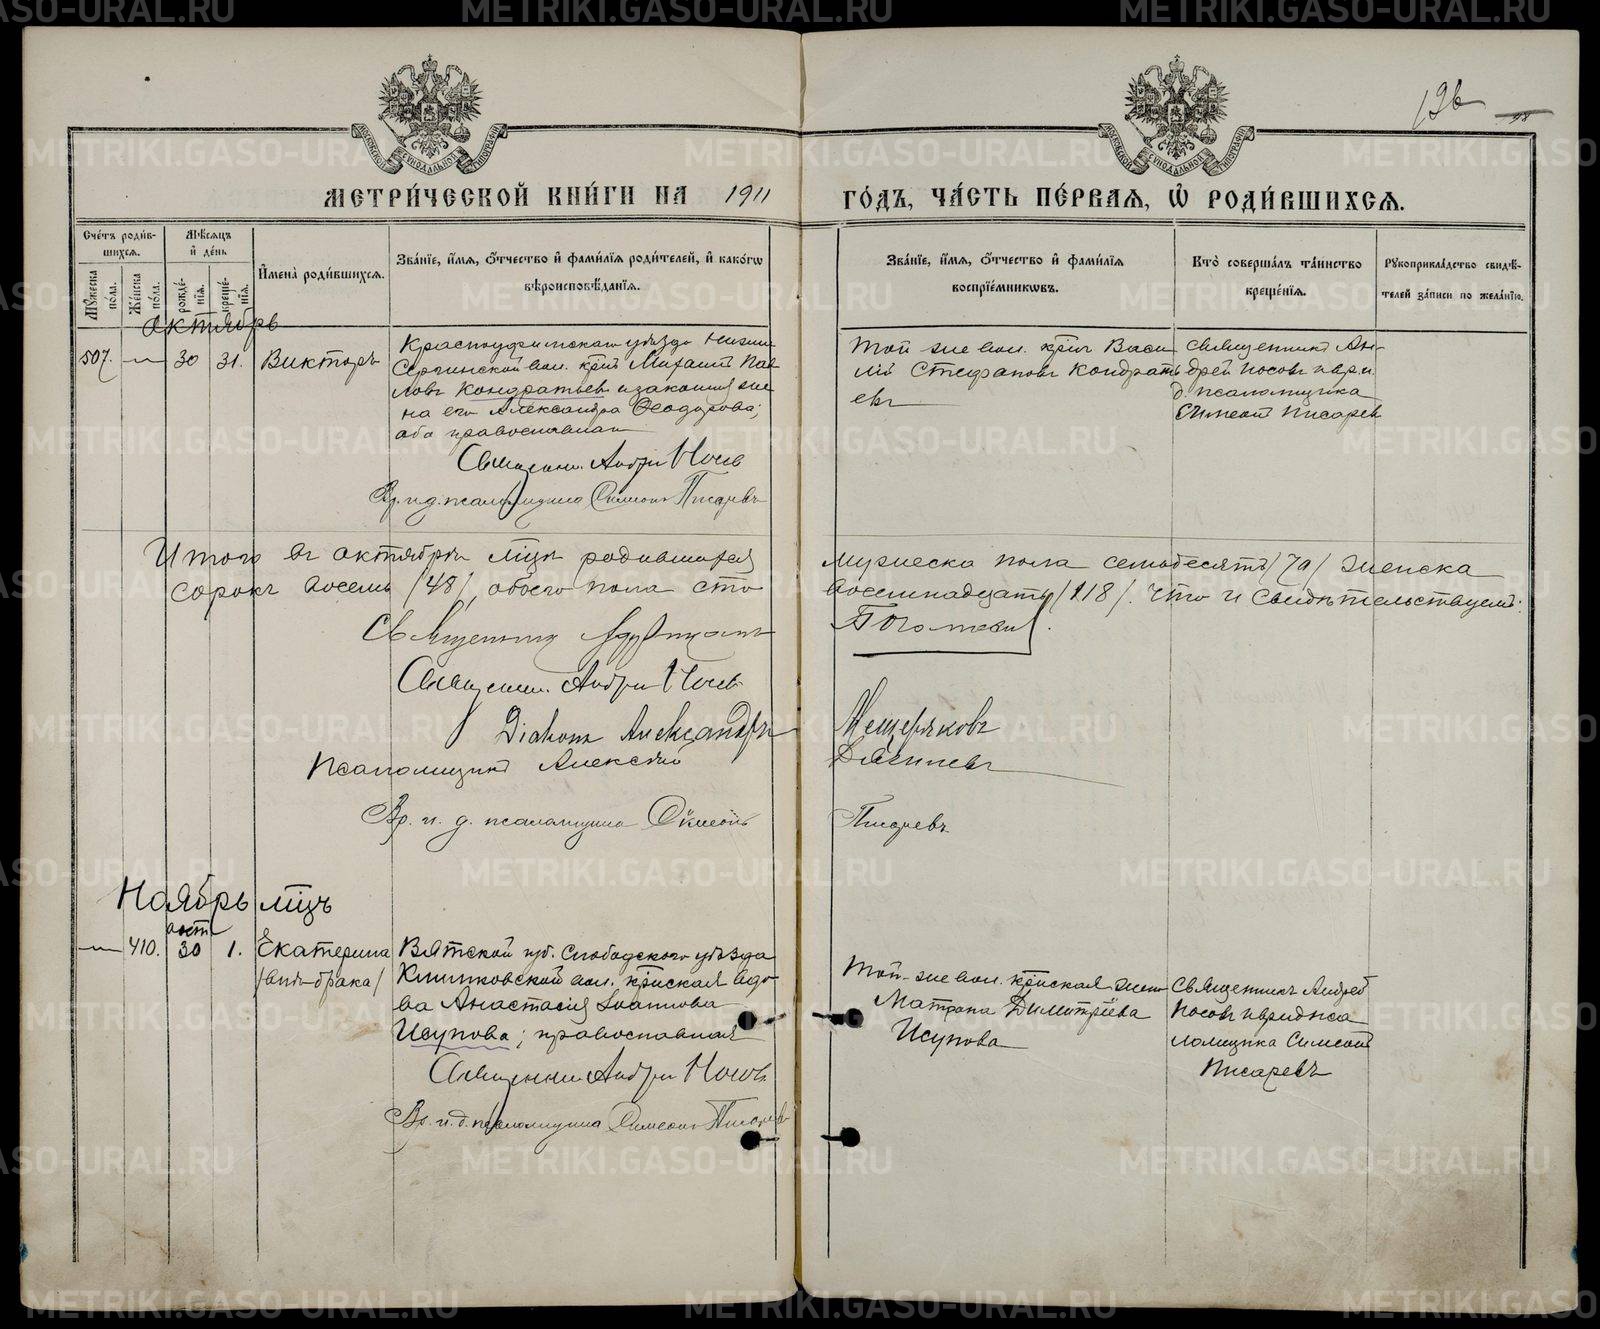 196
98
МЕТРИ́ЧЕСКОЙ КНИ́ГИ НА 1911 ГО́ДЪ, ЧА́СТЬ ПЕ́РВАЯ, Ѡ҆ РОДИ́ВШИХСЯ.
Сче́тъ роди́в-
шихся.
Мѣ́сяцъ
и҆ де́нь
Му́жеска по́ла.
Же́нска по́ла.
рожде́-нїя.
креще́-нїя.
И҆мена̀ роди́вшихся.
Зва́нїе, и҆́мя, ѻ҆́тчество и҆ фами́лїя роди́телей, и҆ како́гѡ
вѣроисповѣ́данїя.
Зва́нїе, и҆́мя, ѻ҆́тчество и҆ фами́лїя
воспрїе́мниковъ.
Кто̀ соверша́лъ та́инство
креще́нїя.
Рꙋкоприкла́дство свидѣ́-
телей за́писи по жела́нїю.
Октябрь
507. — 30 31. Викторъ
Красноуфимскаго уѣзда Нижне
Сергинской вол. кр. Михаилъ Пав
ловъ Кондратьевъ и законная же
на его Александра Ѳеодорова;
оба православные
Священн. Андрей Носовъ
Вр. и. д. псаломщика Симеонъ Писаревъ
Той же вол. кр. Васи
лій Стефановъ Кондрать
евъ
Священникъ Ан-
дрей Носовъ и вр. и.
д. псаломщика
Симеонъ Писаревъ
Итого въ октябрѣ мцѣ родившихся мужеска пола семьдесятъ /70/ женска
сорокъ восемь /48/, обоего пола сто восемнадцать /118/. Что и свидѣтельствуемъ:
Священникъ
Священн. Андрей Носовъ
Діаконъ Александръ Мещеряковъ
Псаломщикъ Алексѣй
Вр. и. д. псаломщика Симеонъ Писаревъ
Ноябрь мцъ
окт
— 410. 30 1. Екатерина
/внѣ-брака/
Вятской губ. Слободскаго уѣзда
вол. крестьянская вдо-
ва Анастасія Іоаннова
Исупова; православная
Священникъ Андрей Носовъ
Вр. и. д. псаломщика Симеонъ Писаревъ
Той-же вол. крестьянская жена
Матрона Димитріева
Исупова
Священникъ Андрей
Носовъ и вр. и д. пса
ломщика Симеонъ
Писаревъ
METRIKI.GASO-URAL.RU